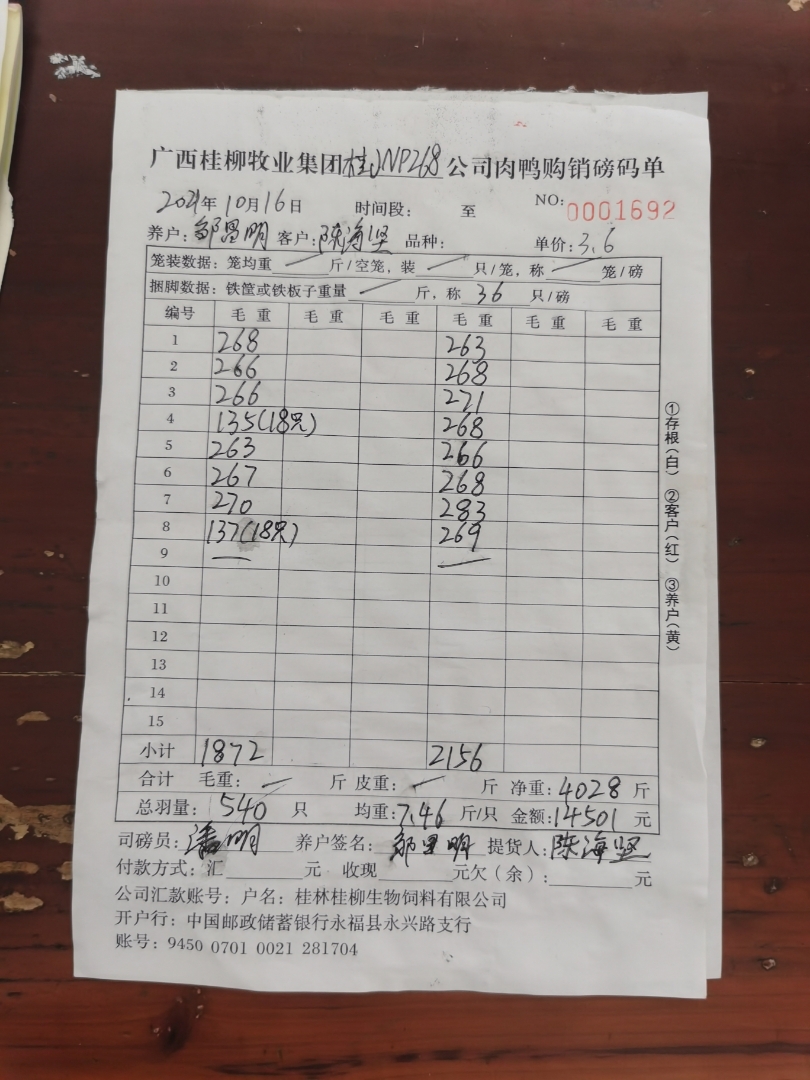 广西桂柳牧业集团桂JNP268公司肉鸭购销磅码单
2021年10月16日 时间段: 至 NO: 0001692
养户:邹昌明 客户:陈海坚 品种: 单价:3.6
笼装数据: 笼均重 — 斤/空笼, 装 — 只/笼, 称 — 笼/磅
捆脚数据: 铁筐或铁板子重量 — 斤, 称 36 只/磅
编号 毛重 毛重 毛重 毛重 毛重 毛重
1 268 263
2 266 268
3 266 271
4 135(18只) 268
5 263 266
6 267 268
7 270 283
8 137(18只) 269
9 — —
10
11
12
13
14
15
小计 1872 2156
合计 毛重: — 斤 皮重: — 斤 净重:4028斤
总羽量: 540 只 均重:7.46斤/只 金额:14501元
司磅员:潘明 养户签名:邹昌明 提货人:陈海坚
付款方式:汇 元 收现 元欠(余): 元
公司汇款账号: 户名: 桂林桂柳生物饲料有限公司
开户行: 中国邮政储蓄银行永福县永兴路支行
账号: 9450 0701 0021 281704
①存根(白) ②客户(红) ③养户(黄)